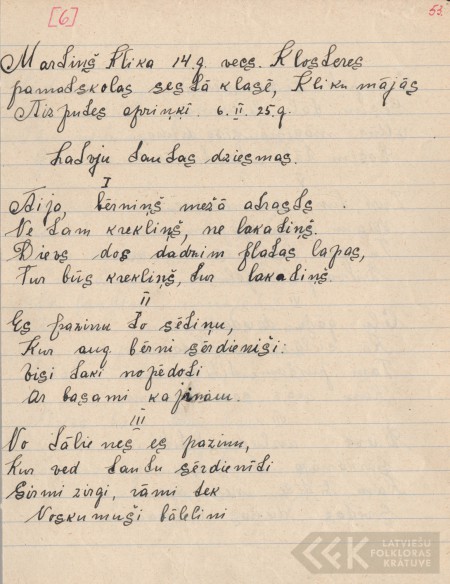 [6]
53.
Martiņš Klika 14.g. vecs. Klosteres
pamatskolas sestā klasē, Kliku mājās
Aizputes apriņķī 6. II. 25.g.
Latvju tautas dziesmas.
I
Aija, bērniņš mežā atrasts.
Ne tam krekliņš, ne lakatiņš.
Dievs dos dadzim platas lapas,
Tur būs krekliņš, tur lakatiņš.
II
Es pazinu to sētiņu,
Kur aug bērni sērdieniši:
Visi taki nopēdoti
Ar basami kajinam.
III
No tālienes es pazinu,
Kur ved tautu sērdienīti
Sirmi zirgi, rāmi tek
Noskumuši bāleliņi
LATVIEŠU
FOLKLORAS
KRĀTUVE